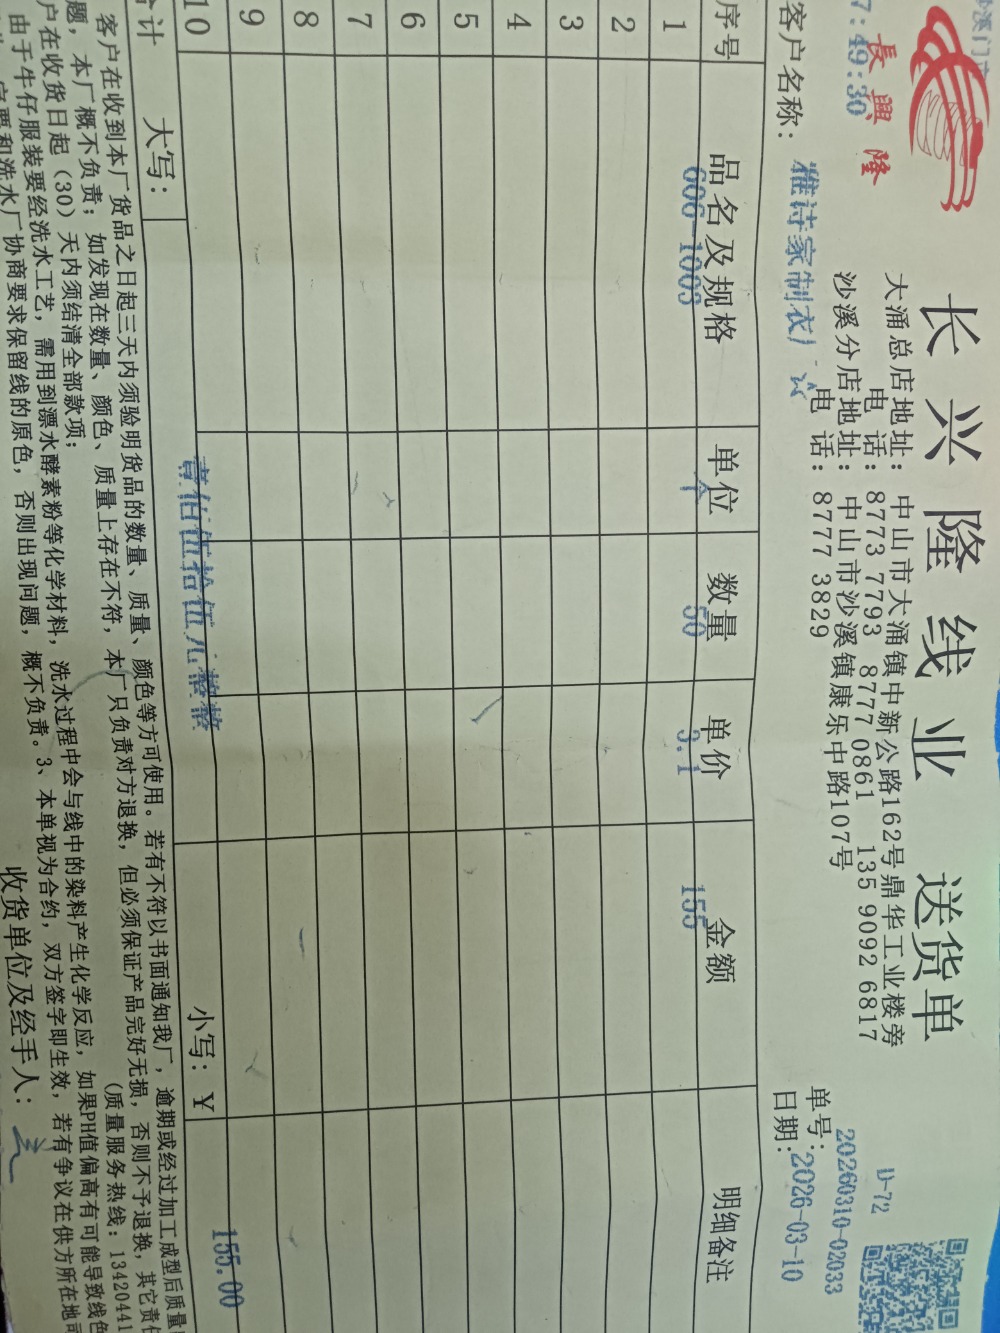 长兴隆线业 送货单
長興隆
7:49:30
大涌总店地址: 中山市大涌镇中新公路162号鼎华工业楼旁
电 话: 8773 7793 8777 0861 135 9092 6817
沙溪分店地址: 中山市沙溪镇康乐中路107号
电 话: 8777 3829
D-72
单号: 20260310-02033
客户名称: 雅诗家制衣厂
日期: 2026-03-10
序号 品名及规格 单位 数量 单价 金额 明细备注
1 606-1003 个 50 3.1 155
2
3
4
5
6
7
8
9
10
合计 大写: 壹佰伍拾伍元整 小写: ¥ 155.00
客户在收到本厂货品之日起三天内须验明货品的数量、质量、颜色等方可使用。若有不符以书面通知我厂, 逾期或经过加工成型后质量
题, 本厂概不负责; 如发现在数量、颜色、质量上存在不符, 本厂只负责对方退换, 但必须保证产品完好无损, 否则不予退换, 其它责任
户在收货日起 (30) 天内须结清全部款项; (质量服务热线: 13420441
由于牛仔服装要经洗水工艺, 需用到漂水酵素粉等化学材料, 洗水过程中会与线中的染料产生化学反应, 如果PH值偏高有可能导致线色
定要和洗水厂协商要求保留线的原色, 否则出现问题, 概不负责。3、本单视为合约, 双方签字即生效, 若有争议在供方所在地
收货单位及经手人: